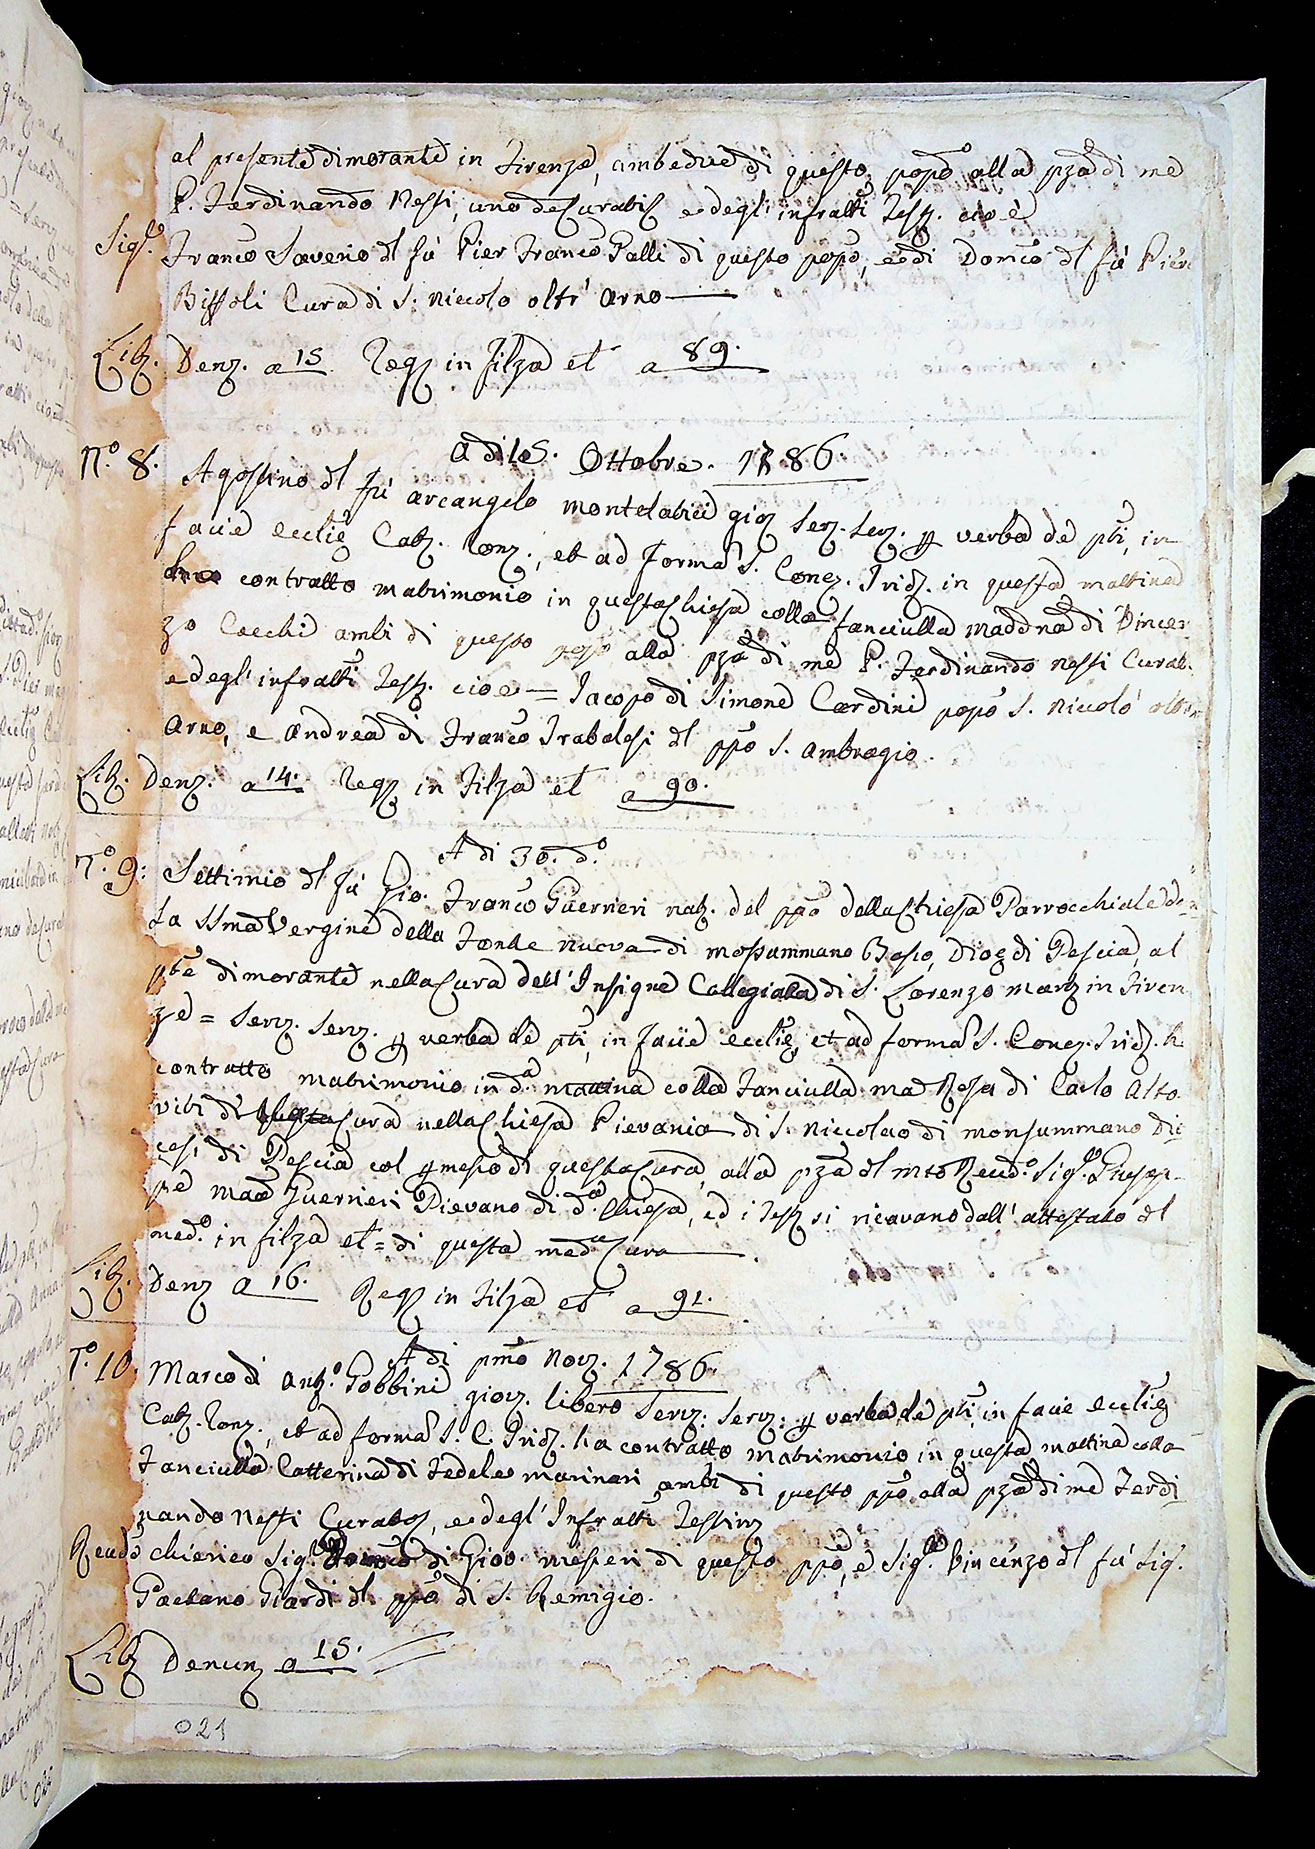 al presente dimorante in Firenze, ambedue di questo popo alla pza di me
P. Ferdinando Nessi, uno de Curati e degl' infratti Tess. cioè
Sigr. Franco Saverio dl fù Pier Franco Galli di questo popo, e di Domco dl fù Pier
Biffoli Cura di S. Niccolo oltr' Arno
Lib. Denz. a 15 Regz in filza et a 89.
N.o 8. A di 15. Ottobre. 1786
Agostino dl fù Arcangelo Montelatici gioz Serz. Serz. p verba de pti, in
facie Ecclie Catz. Ronz., et ad forma S. Concz. Tridz. in questa mattina
contratto matrimonio in questa Chiesa colla fanciulla Maddna di Vincen
zo Cecchi ambi di questo popo alla pza di me P. Ferdinando Nessi Curat.
e degl' infratti Tess. cioe = Jacopo di Simone Cardini popo S. Niccolò oltr
Arno, e Andrea di Franco Trabalesi dl ppo S. Ambrogio.
Lib. Denz. a 14. Regz in Filza et a 90.
N.o 9: A di 30. d.o
Settimio dl fù Gio. Franco Guerrieri natz. del ppo della Chiesa Parrocchiale de
La SSma Vergine della Fonte nuova di Monsummano Basso, Diocz di Pescia, al
pte dimorante nella Cura dell' Insigne Collegiata di S. Lorenzo in Firen
ze = Serz. Serz. p verba de pti, in facie ecclie, et ad forma S. Concz. Tridz. h
contratto matrimonio in d.a mattina colla Fanciulla Ma Rosa di Carlo Alto
viti di questa Cura nella Chiesa Pievania di S. Niccolao di Monsummano Dio
cesi di Pescia col pmesso di questa Cura, alla pza dl mto Revd.o Sig.e Giusep
pe Maa Guerrieri Pievano di d.a Chiesa, ed i Tess si ricavano dall' attestato dl
med.o in filza et = di questa meda Cura
Lib. Denz a 16. Regz in Filza et a 91.
N.o 10. A di pmo Novz. 1786.
Marco di Antz.o Gobbini giovz. libero Serz: Serz: p verba de pti, in facie ecclie
Catz. Ronz., et ad forma S. C. Tridz. ha contratto matrimonio in questa mattina colla
Fanciulla Catterina di Fedele Marinari ambi di questo ppo alla pza di me Ferdi
nando Nessi Curatoz, e degl' Infratti Testimz
Revdo chierico Sig.r di Giov. Messeri di questo ppo, e Sig.re Vincenzo dl fù Sig.
Gaetano Giardi dl ppo di S. Remigio.
Lib Denunz a 15.
021